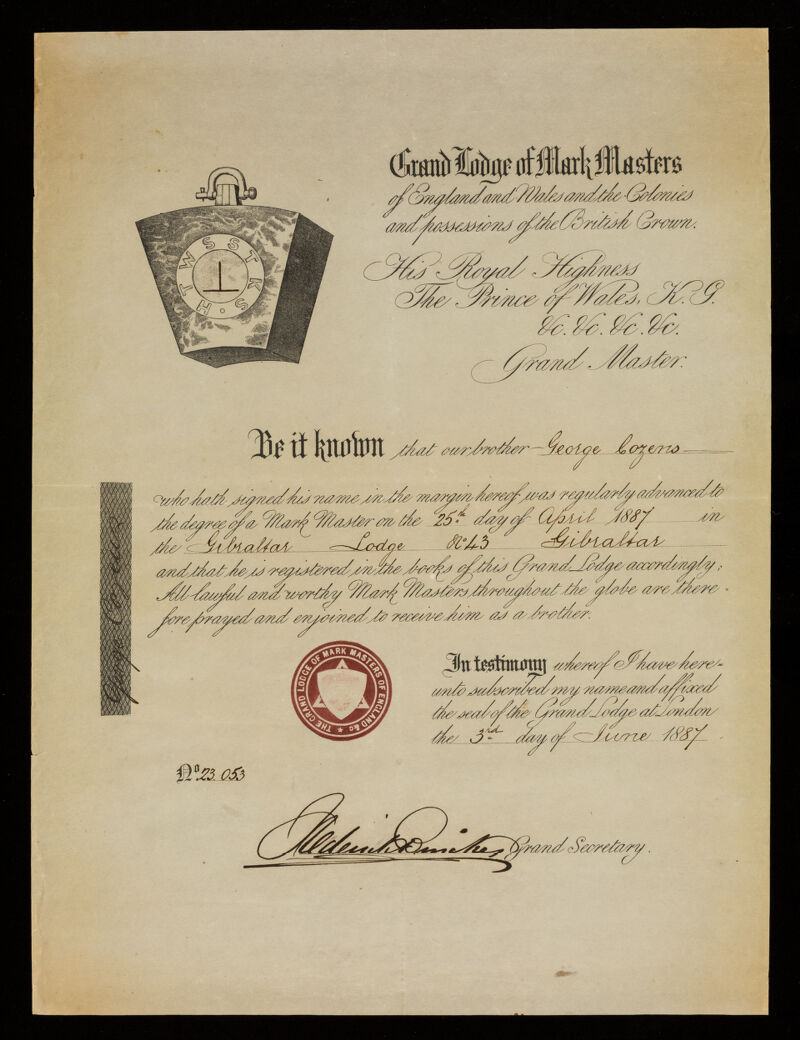 Grand Lodge of Mark Masters
of England and Wales and the Colonies
and possessions of the British Crown.
His Royal Highness
The Prince of Wales, K. G.
&c. &c. &c. &c.
Grand Master.
H T W S S T K S
Be it known that our brother George Cozens
who hath signed his name in the margin hereof was regularly advanced to
the degree of a Mark Master on the 25th day of April 1887 in
the Gibraltar Lodge No 43 Gibraltar
and that he is registered in the books of this Grand Lodge accordingly;
All lawful and worthy Mark Masters throughout the globe are there-
fore prayed and enjoined to receive him as a brother.
George Cozens
In testimony whereof I have here=
unto subscribed my name and affixed
the seal of the Grand Lodge at London
the 3rd day of June 1887.
THE GRAND LODGE OF MARK MASTERS OF ENGLAND &c
No 23.053
Frederick Binckes Grand Secretary.